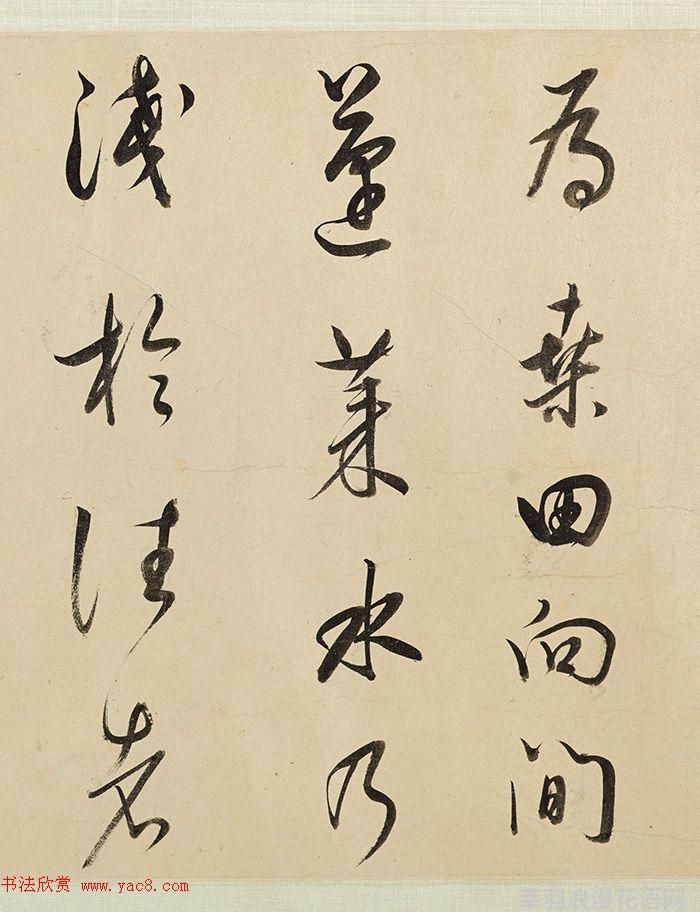 為桑田向間
蓬萊水乃
淺於往者
书法欣赏 www.yac8.com